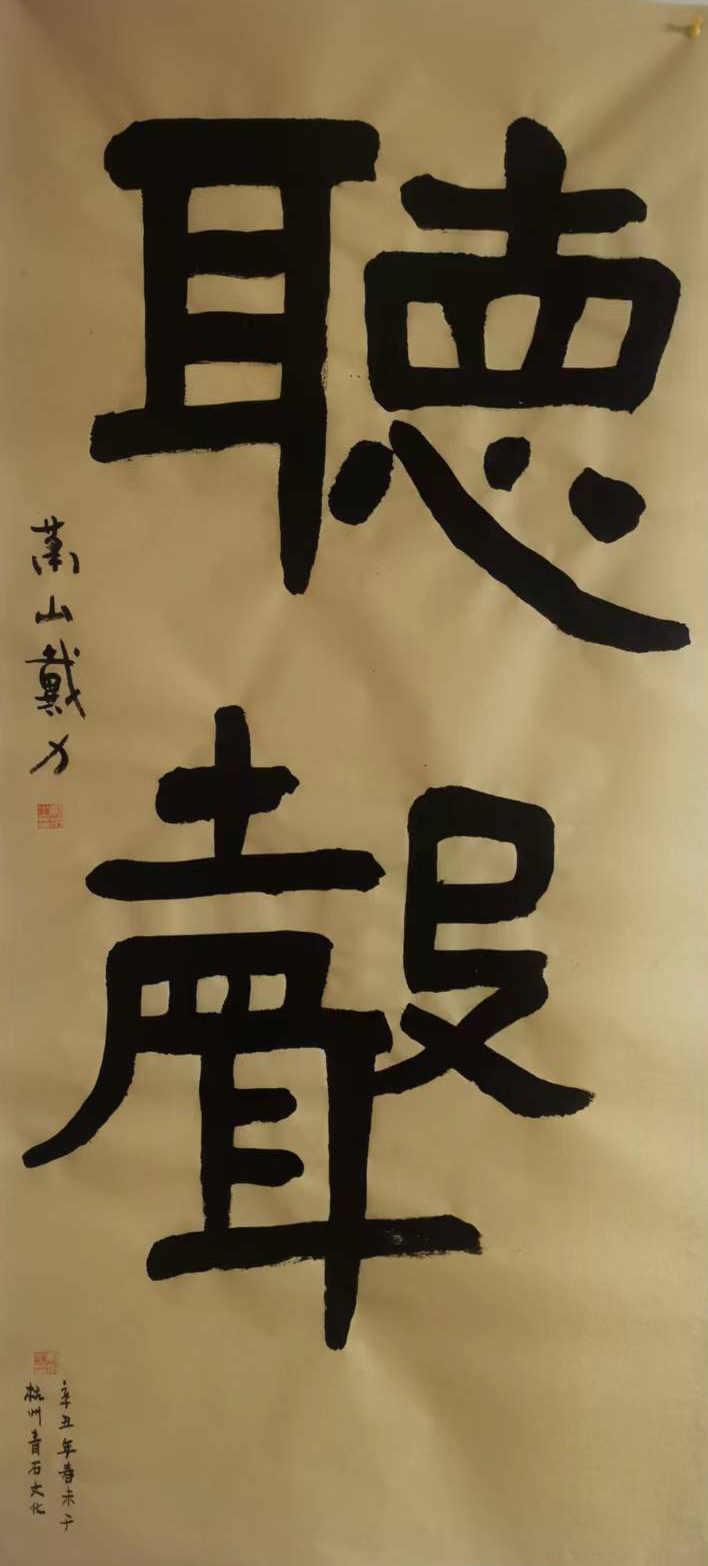 聽
聲
萧山戴力
辛丑年春末于
杭州青石文化